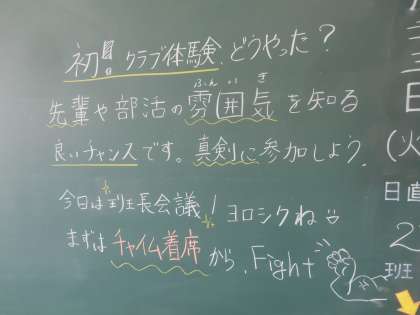 初!! クラブ体験、どうやった?
ふんいき
先輩や部活の雰囲気を知る
良いチャンスです。真剣に参加しよう。
今日は班長会議! ヨロシクね
まずはチャイム着席から、Fight
日
(火
日直
2
班